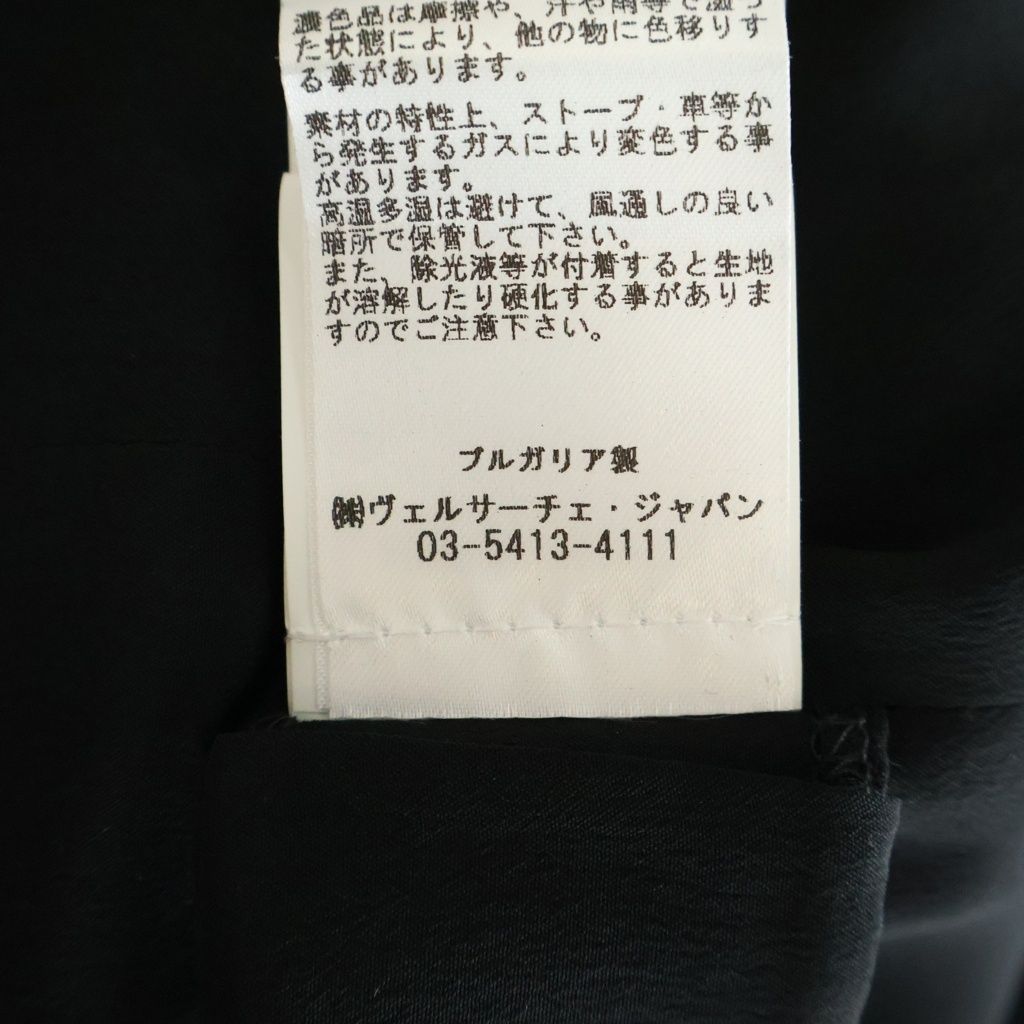 濃色品は摩擦や、汗や雨等で湿っ
た状態により、他の物に色移りす
る事があります。
素材の特性上、ストーブ・車等か
ら発生するガスにより変色する事
があります。
高温多湿は避けて、風通しの良い
暗所で保管して下さい。
また、除光液等が付着すると生地
が溶解したり硬化する事がありま
すのでご注意下さい。
ブルガリア製
㈱ヴェルサーチェ・ジャパン
03-5413-4111